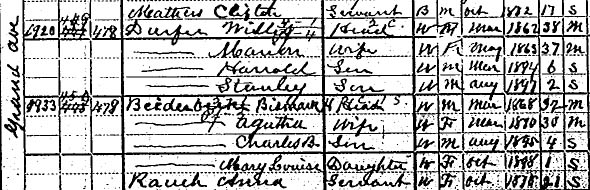 Grand ave
Mathers Clifton Servant B M Oct 1882 17 S
6920 478 Durfee Head W M Mar 1862 38 M
—— Marion Wife W F May 1863 37 M
—— Harrold Son W M Mar 1894 6 S
—— Stanley Son W M Aug 1897 2 S
478 Bismark Head W M Mar 1868 32 M
—— Agutha Wife W F Mar 1870 30 M
—— Charles B Son W M Aug 1895 4 S
—— Mary Louise Daughter W F Oct 1898 1 S
Rauch Anna Servant W F Oct 1878 21 S